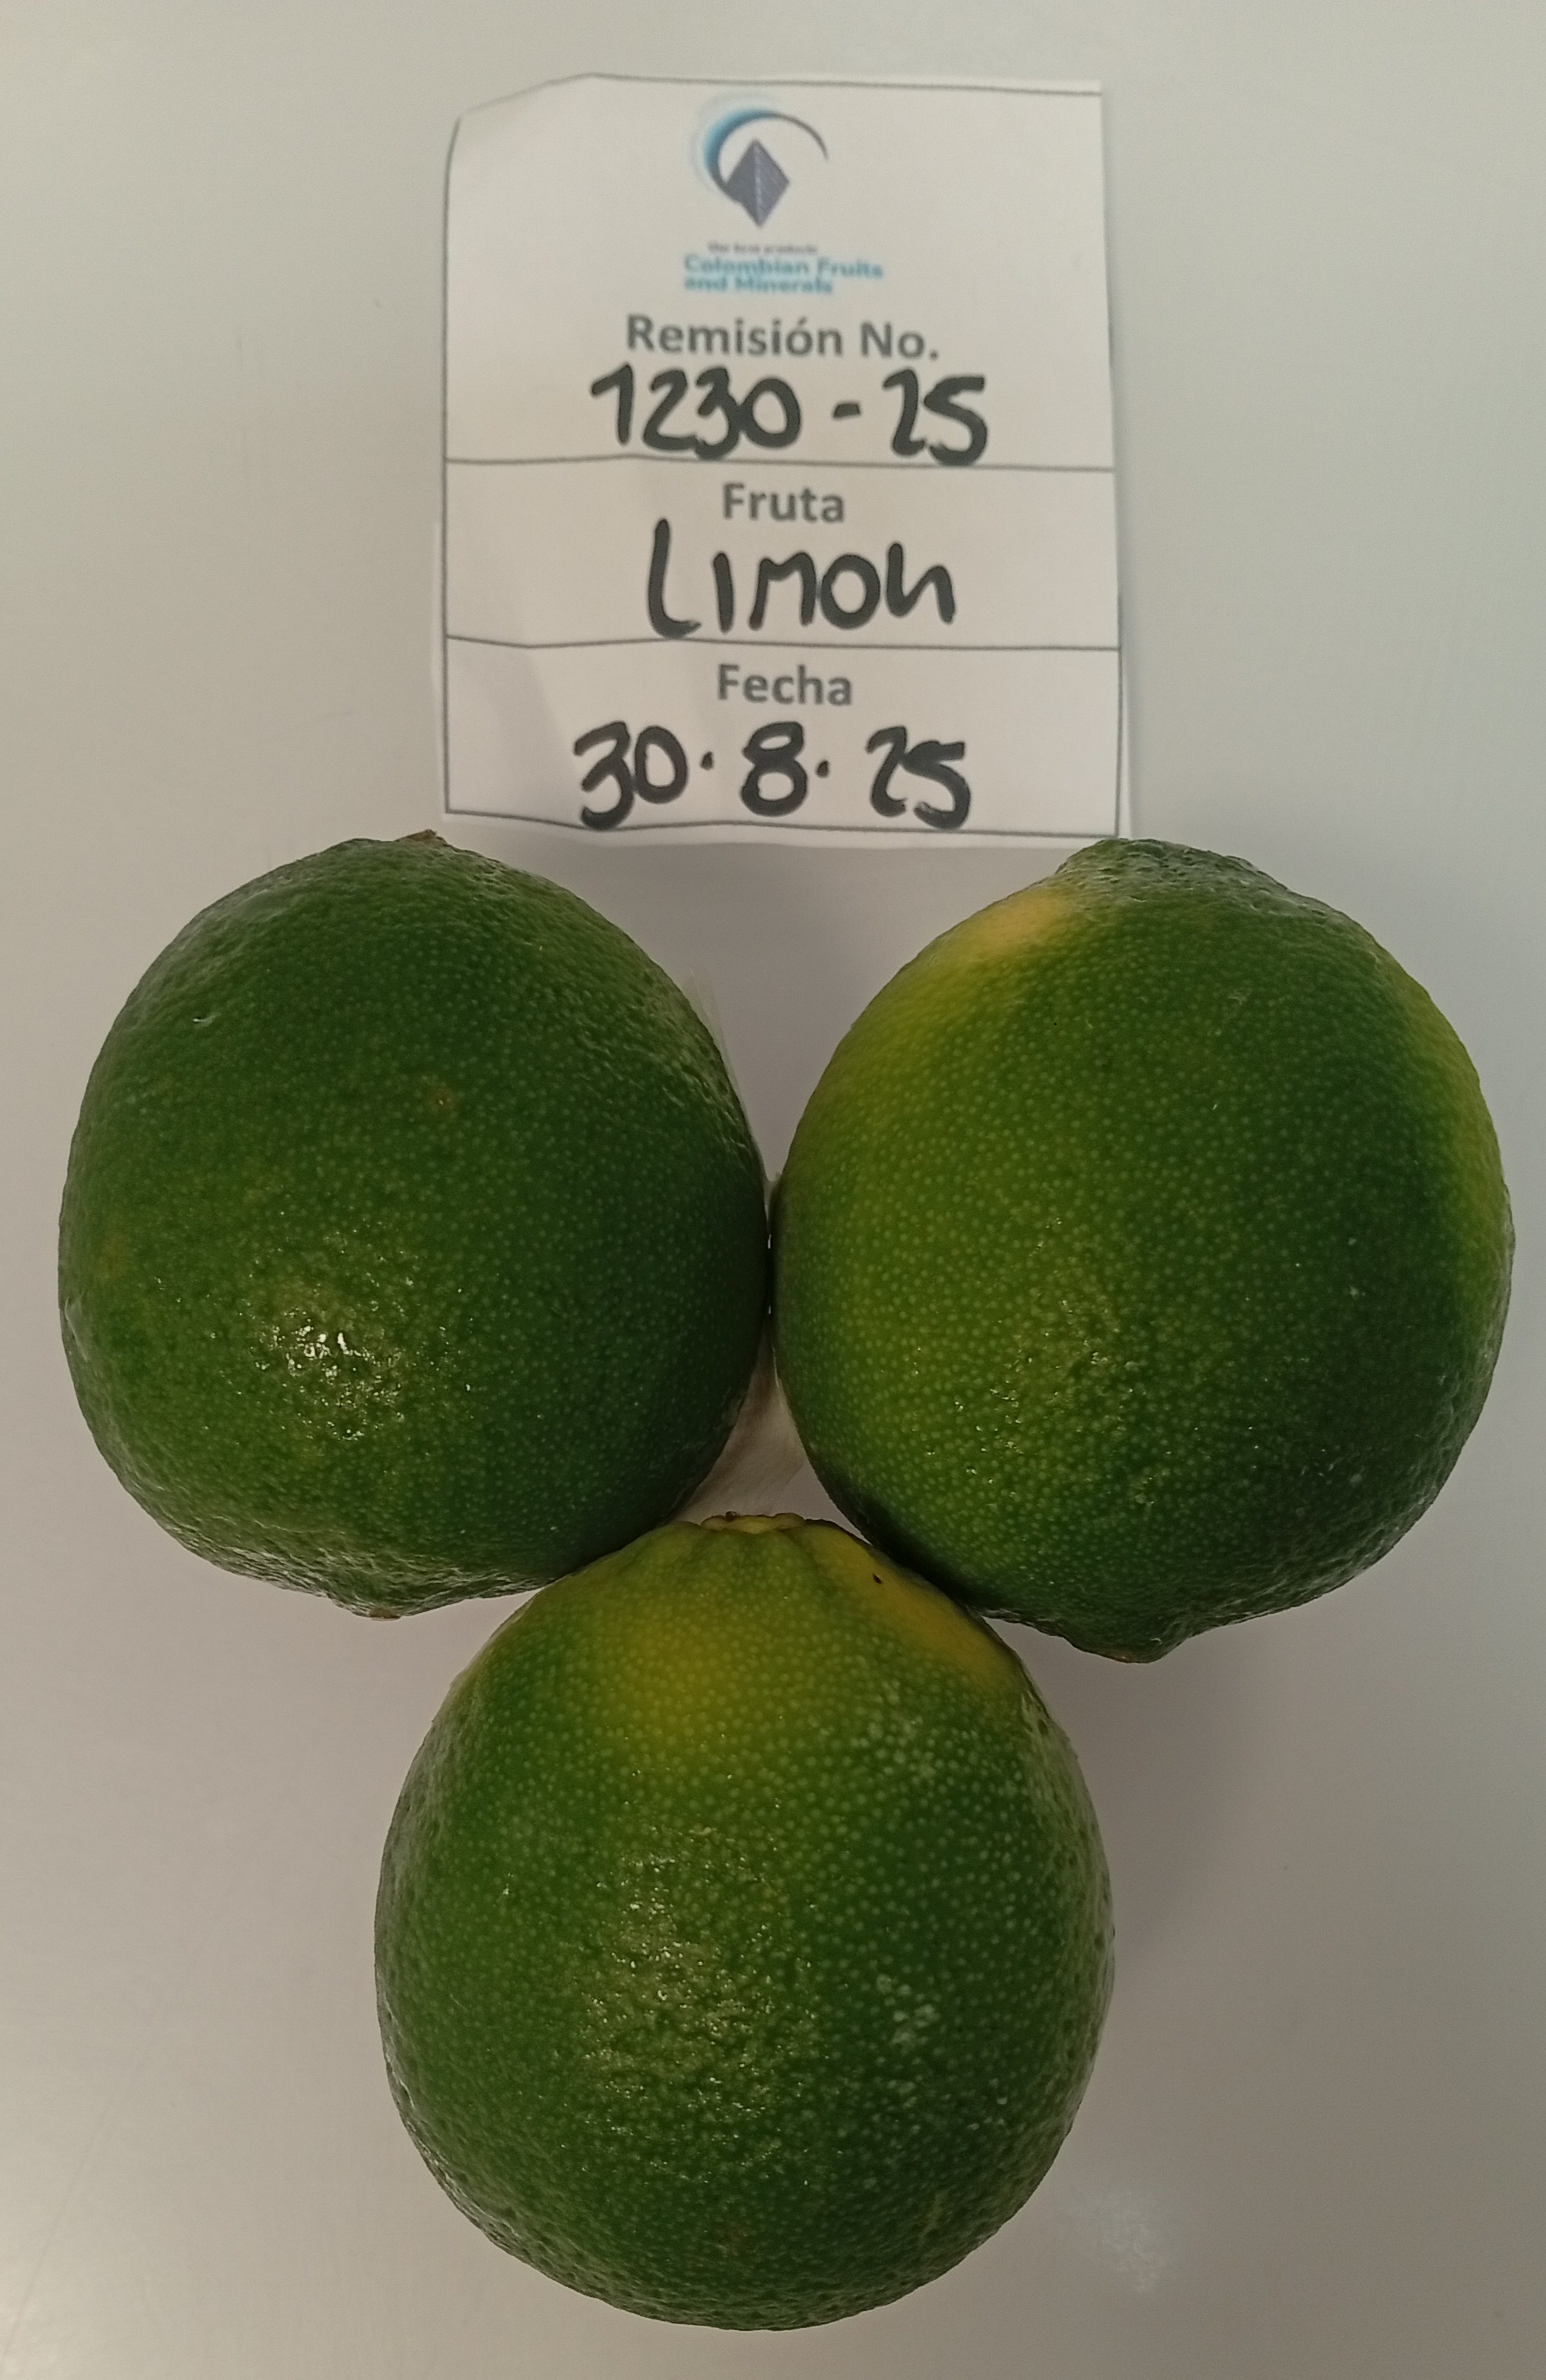 The best products
Colombian Fruits
and Minerals
Remisión No.
1230-25
Fruta
Limon
Fecha
30.8.25